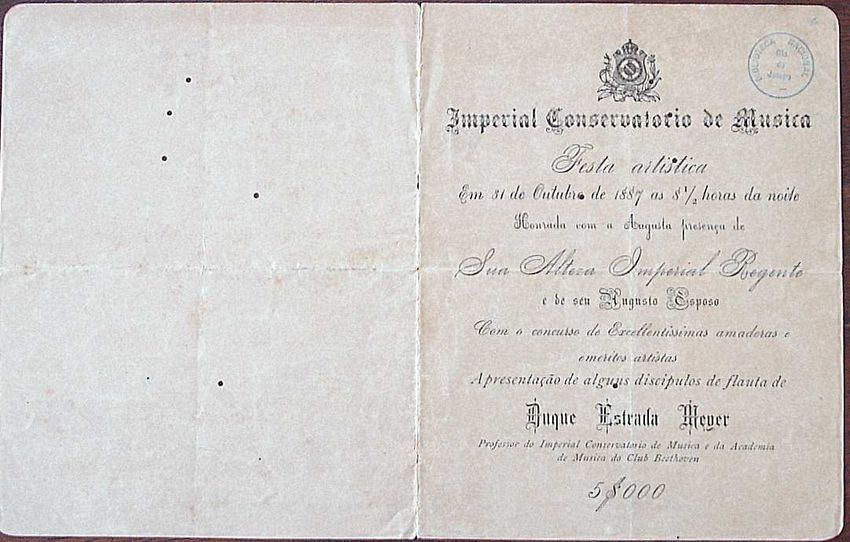 BIBLIOTECA NACIONAL
Imperial Conservatorio de Musica
Festa artistica
Em 31 de Outubro de 1887 as 8 1/2 horas da noite
Honrada com a Augusta presença de
Sua Alteza Imperial Regente
e de seu Augusto Esposo
Com o concurso de Excellentissimas amadoras e
emeritos artistas
Apresentação de alguns discipulos de flauta de
Duque Estrada Meyer
Professor do Imperial Conservatorio de Musica e da Academia
de Musica do Club Beethoven
5$000